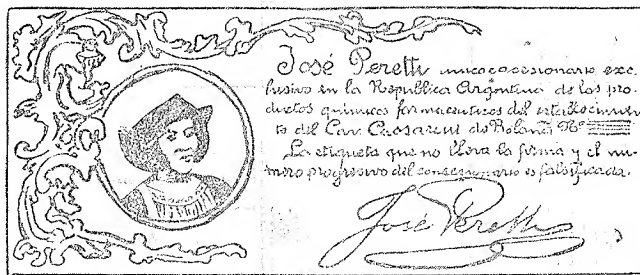 José Peretti unico cocesionario exc
lusivo en la Republica Argentina de los pro-
ductos quimicos farmaceuticos del establecimien-
to del Cav. de Bolonia Nº
La etiqueta que no lleva la firma y el nu-
mero progresivo del concesionario es falsificada.
José Peretti